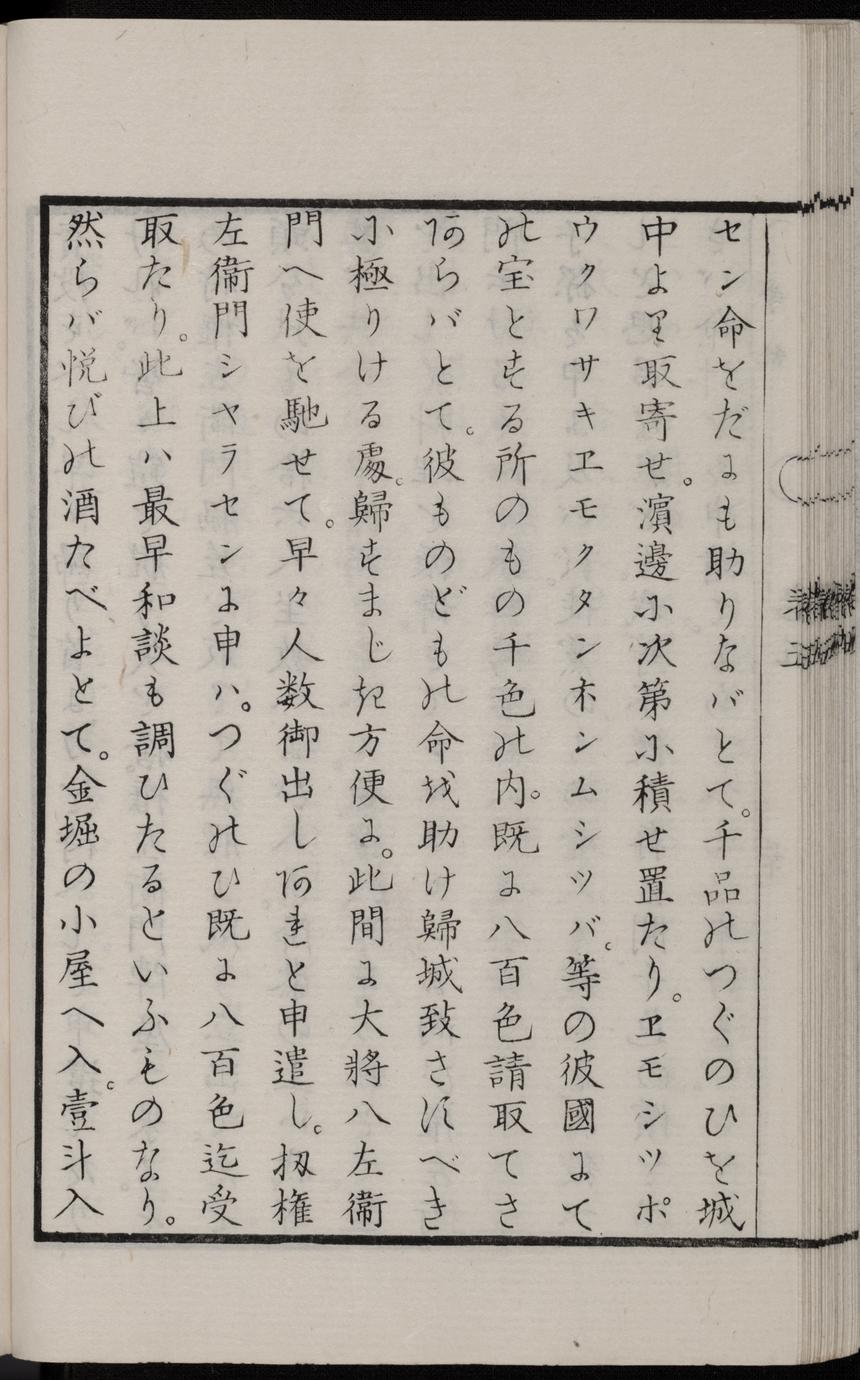 セン命をだにも助りなバとて。千品のつぐのひを城
中より取寄せ。濱邊に次第に積せ置たり。ヱモシツポ
ウクワサキヱモクタンホンムシツバ。等の彼國にて
の宝とする所のもの千色の内。既に八百色請取てさ
あらバとて。彼ものどもの命を助け歸城致さすべき
に極りける處。歸すまじき方便に。此間に大將八左衞
門へ使を馳せて。早々人数御出しあれと申遣し。扨権
左衞門シヤラセンに申ハ。つぐのひ既に八百色迄受
取たり。此上ハ最早和談も調ひたるといふものなり。
然らバ悦びの酒たべよとて。金堀の小屋へ入。壹斗入